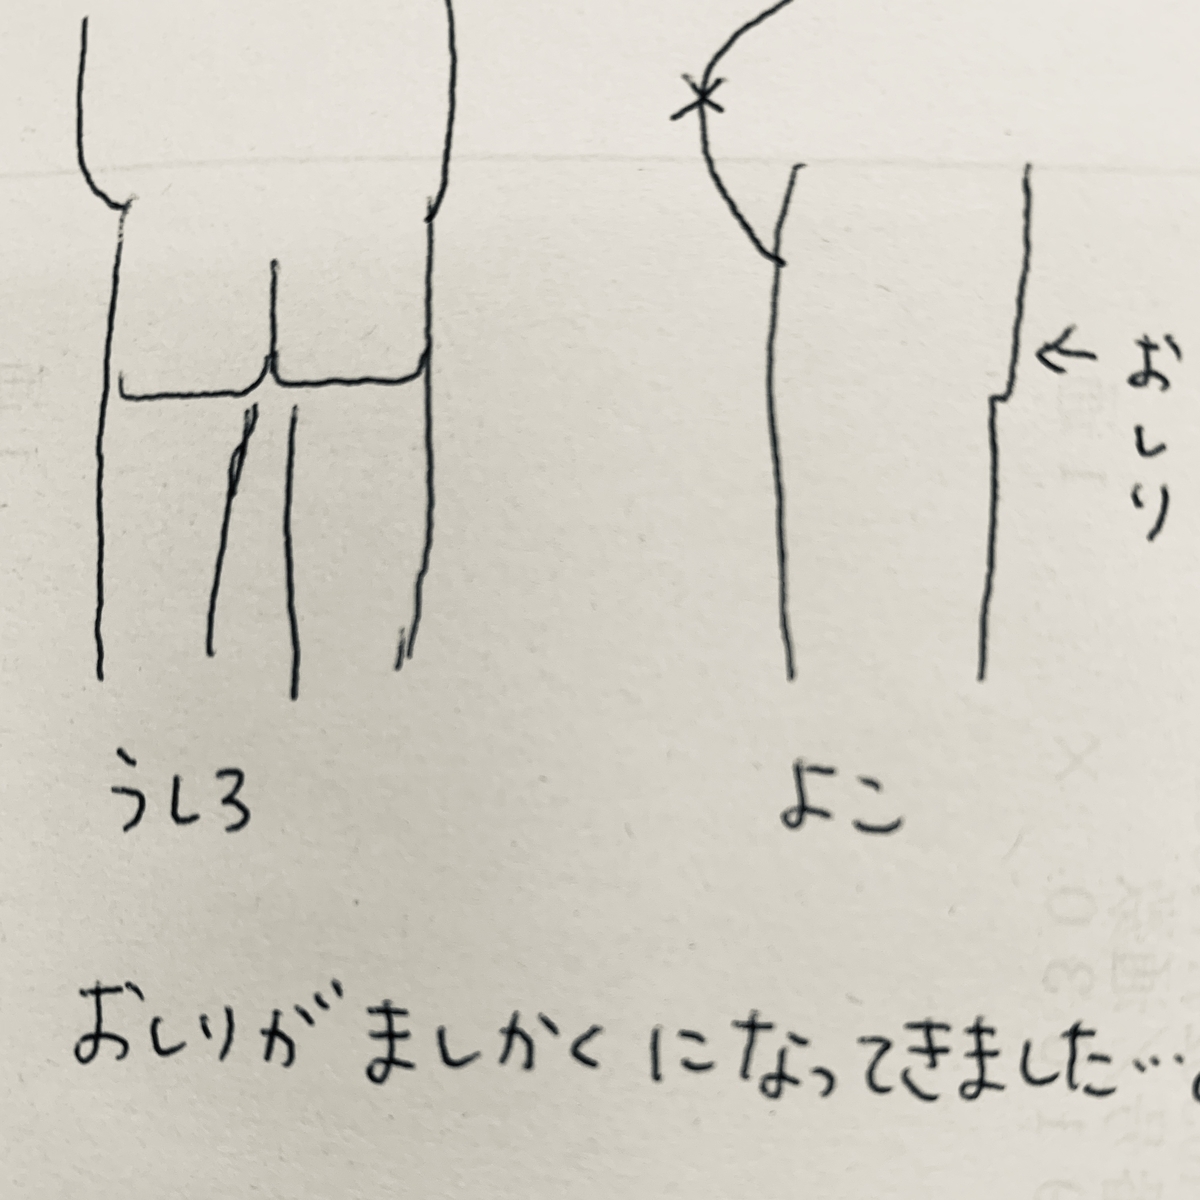 おしり
うしろ
よこ
おしりがましかくになってきました…。